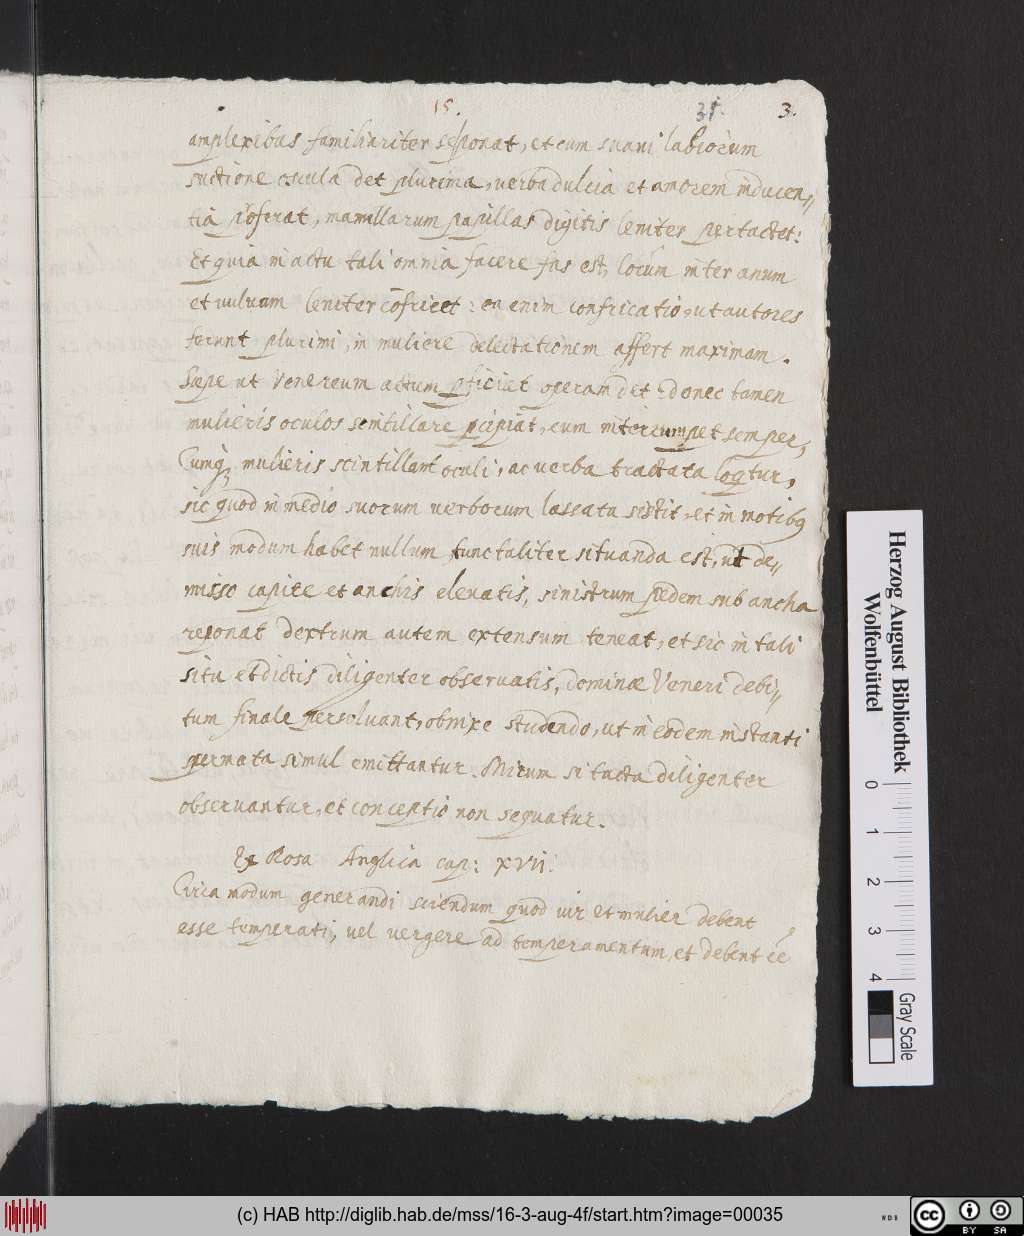 15.
31. 3.
amplexibus familiariter seponat, et cum suaui labiorum
suctione oscula det plurima, uerba dulcia et amorem inducen„
tia p̄ferat, mamillarum papillas digitis leniter pertactet:
Et quia in actu tali omnia facere fas est, locum inter anum
et uuluam leniter cōfricet: ea enim confricatio, ut autores
ferunt plurimi, in muliere delectationem affert maximam.
Saepe ut Venereum actum pficiat operam det donec tamen
mulieris oculos scintillare pcipiat, eum intercumpet semper,
Cumq; mulieris scintillant oculi, ac uerba tractata loqtur,
sic quod in medio suorum uerborum lassata sistit, et in motibq
suis modum habet nullum, tunc taliter situanda est, ut de„
misso capite et anchis eleuatis, sinistrum pedem sub ancha
reponat dextrum autem extensum teneat, et sic in tali
situ et dictis diligenter obseruatis, Dominae Veneri debi„
tum finale persoluant, obnixe studendo, ut in eodem instanti
spermata simul emittantur. Mirum si facta diligenter
obseruantur, et conceptio non sequatur.
Ex Rosa Anglica cap: XVII.
Circa modum generandi sciendum quod uir et mulier debent
esse temperati, uel uergere ad temperamentum, et debent ēē
Herzog August Bibliothek
Wolfenbüttel
0 1 2 3 4
Gray Scale
(c) HAB http://diglib.hab.de/mss/16-3-aug-4f/start.htm?image=00035
WDB
cc BY SA